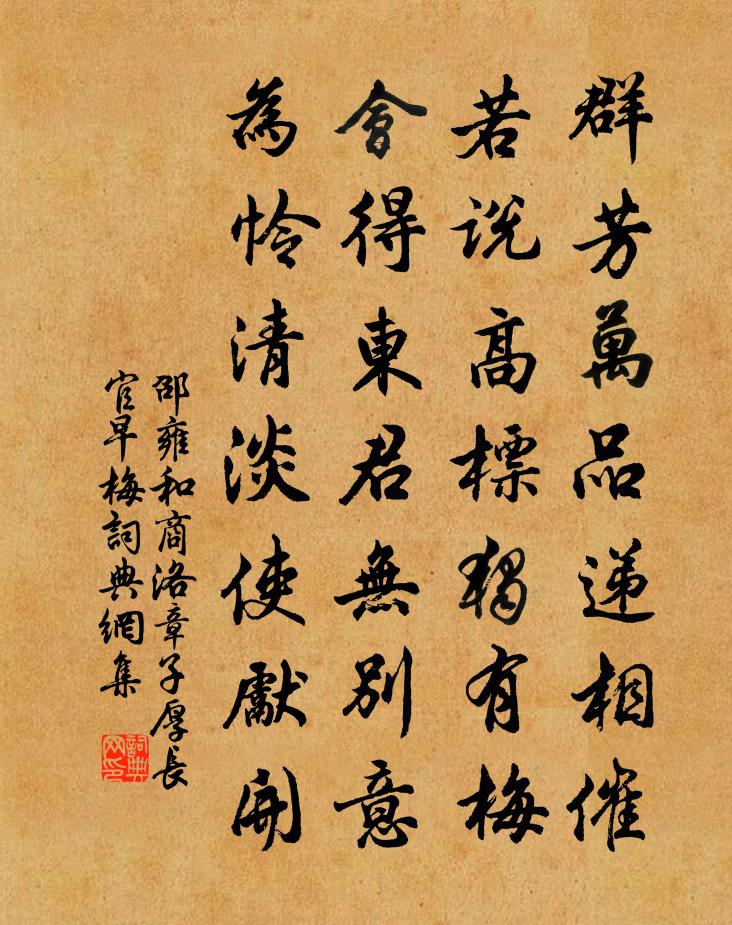 群芳萬品遞相催
若說高標獨有梅
會得東君無別意
為憐清淡使獻開
邵雍和商洛章子厚長
官早梅詞典網集
詞典
网印